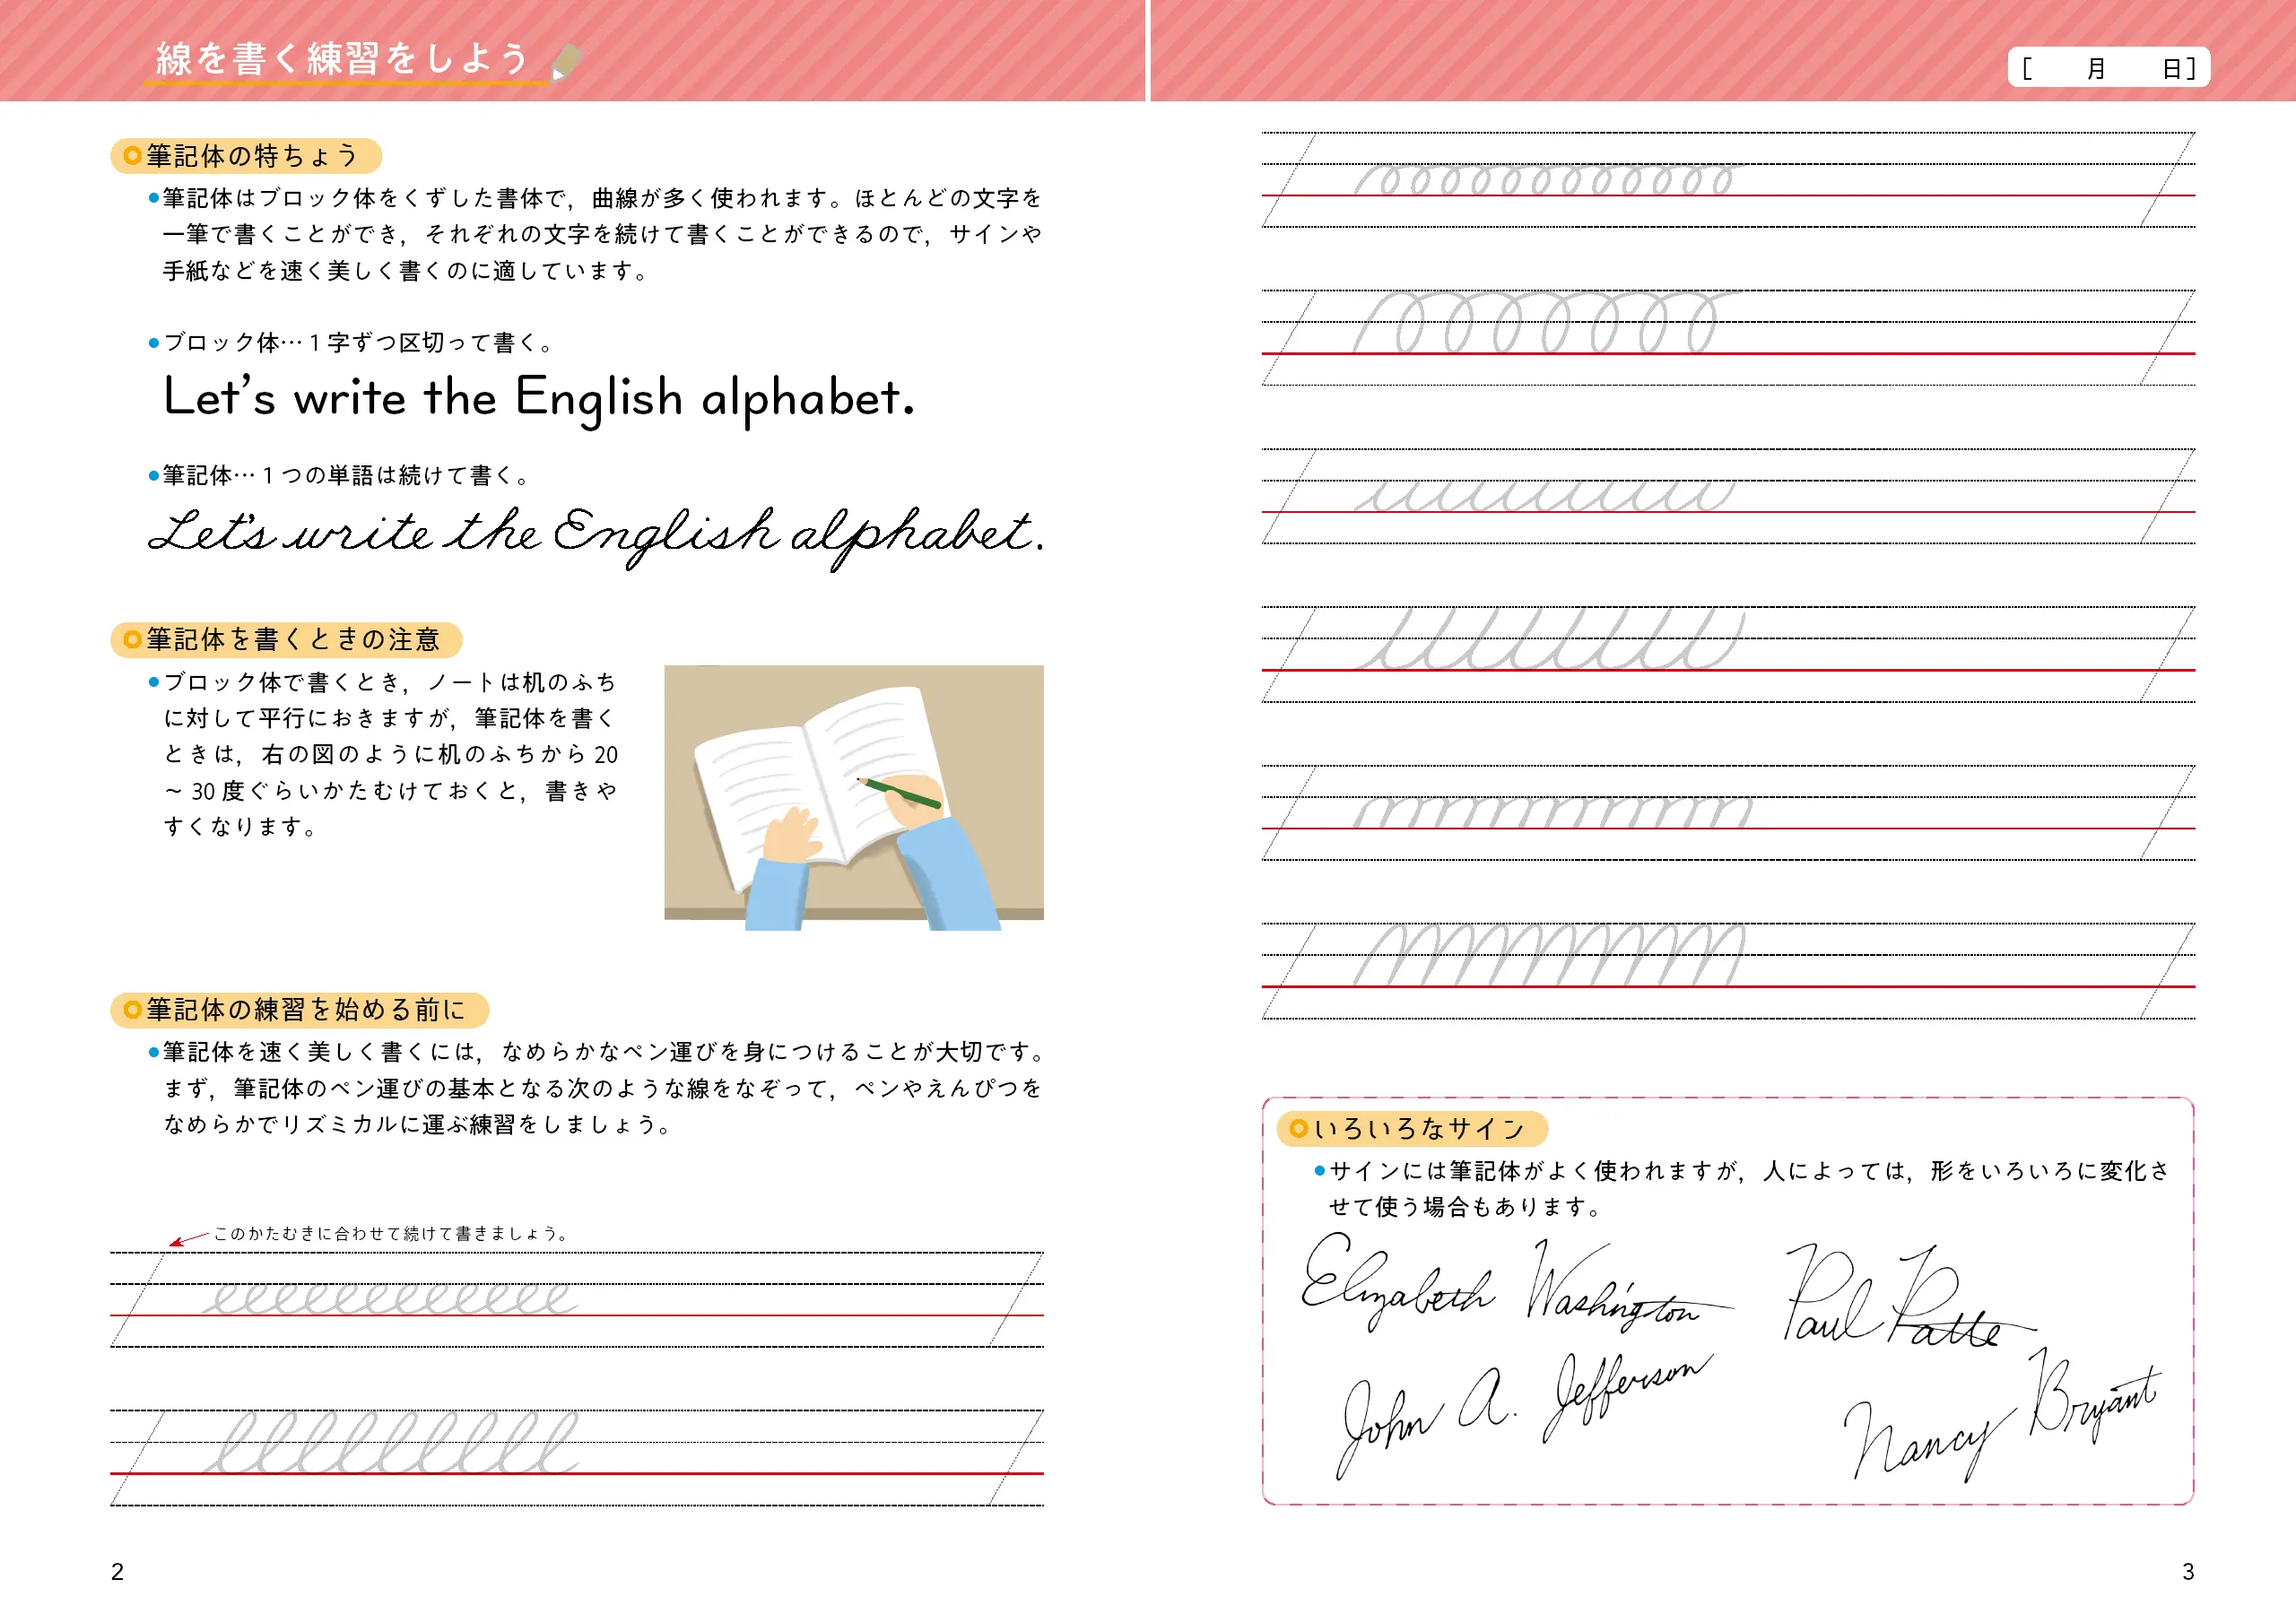 線を書く練習をしよう
筆記体の特ちょう
●筆記体はブロック体をくずした書体で，曲線が多く使われます。ほとんどの文字を
一筆で書くことができ，それぞれの文字を続けて書くことができるので，サインや
手紙などを速く美しく書くのに適しています。
●ブロック体…１字ずつ区切って書く。
Let's write the English alphabet.
●筆記体…１つの単語は続けて書く。
Let's write the English alphabet.
筆記体を書くときの注意
●ブロック体で書くとき，ノートは机のふち
に対して平行におきますが，筆記体を書く
ときは，右の図のように机のふちから 20
～ 30 度ぐらいかたむけておくと，書きや
すくなります。
筆記体の練習を始める前に
●筆記体を速く美しく書くには，なめらかなペン運びを身につけることが大切です。
まず，筆記体のペン運びの基本となる次のような線をなぞって，ペンやえんぴつを
なめらかでリズミカルに運ぶ練習をしましょう。
このかたむきに合わせて続けて書きましょう。
2
[　月　日]
いろいろなサイン
●サインには筆記体がよく使われますが，人によっては，形をいろいろに変化さ
せて使う場合もあります。
Elizabeth Washington
Paul Katte
John A. Jefferson
Nancy Bryant
3